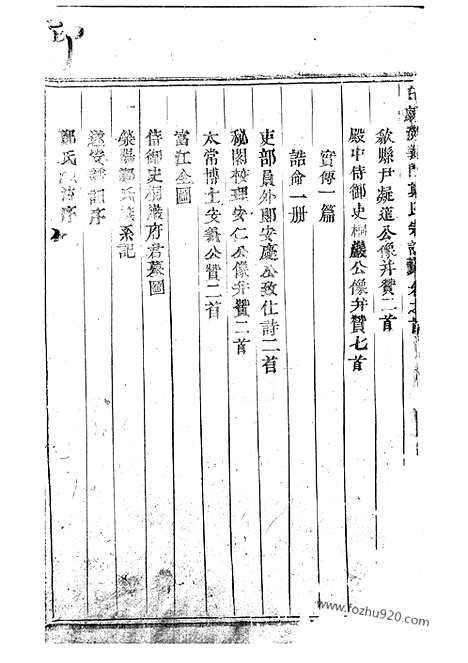 義門鄭氏宗譜卷之首
歙縣尹凝道公像并贊二首
殿中侍御史桐巖公像并贊七首
實傳一篇
誥命一册
吏部員外郎安慶公致仕詩二首
秘閣校理安仁公像并贊二首
太常博士安公贊二首
富江全圖
侍御史桐巖府君墓圖
滎陽鄭氏族系記
遂安譜記序
鄭氏序
www.fozhu920.com